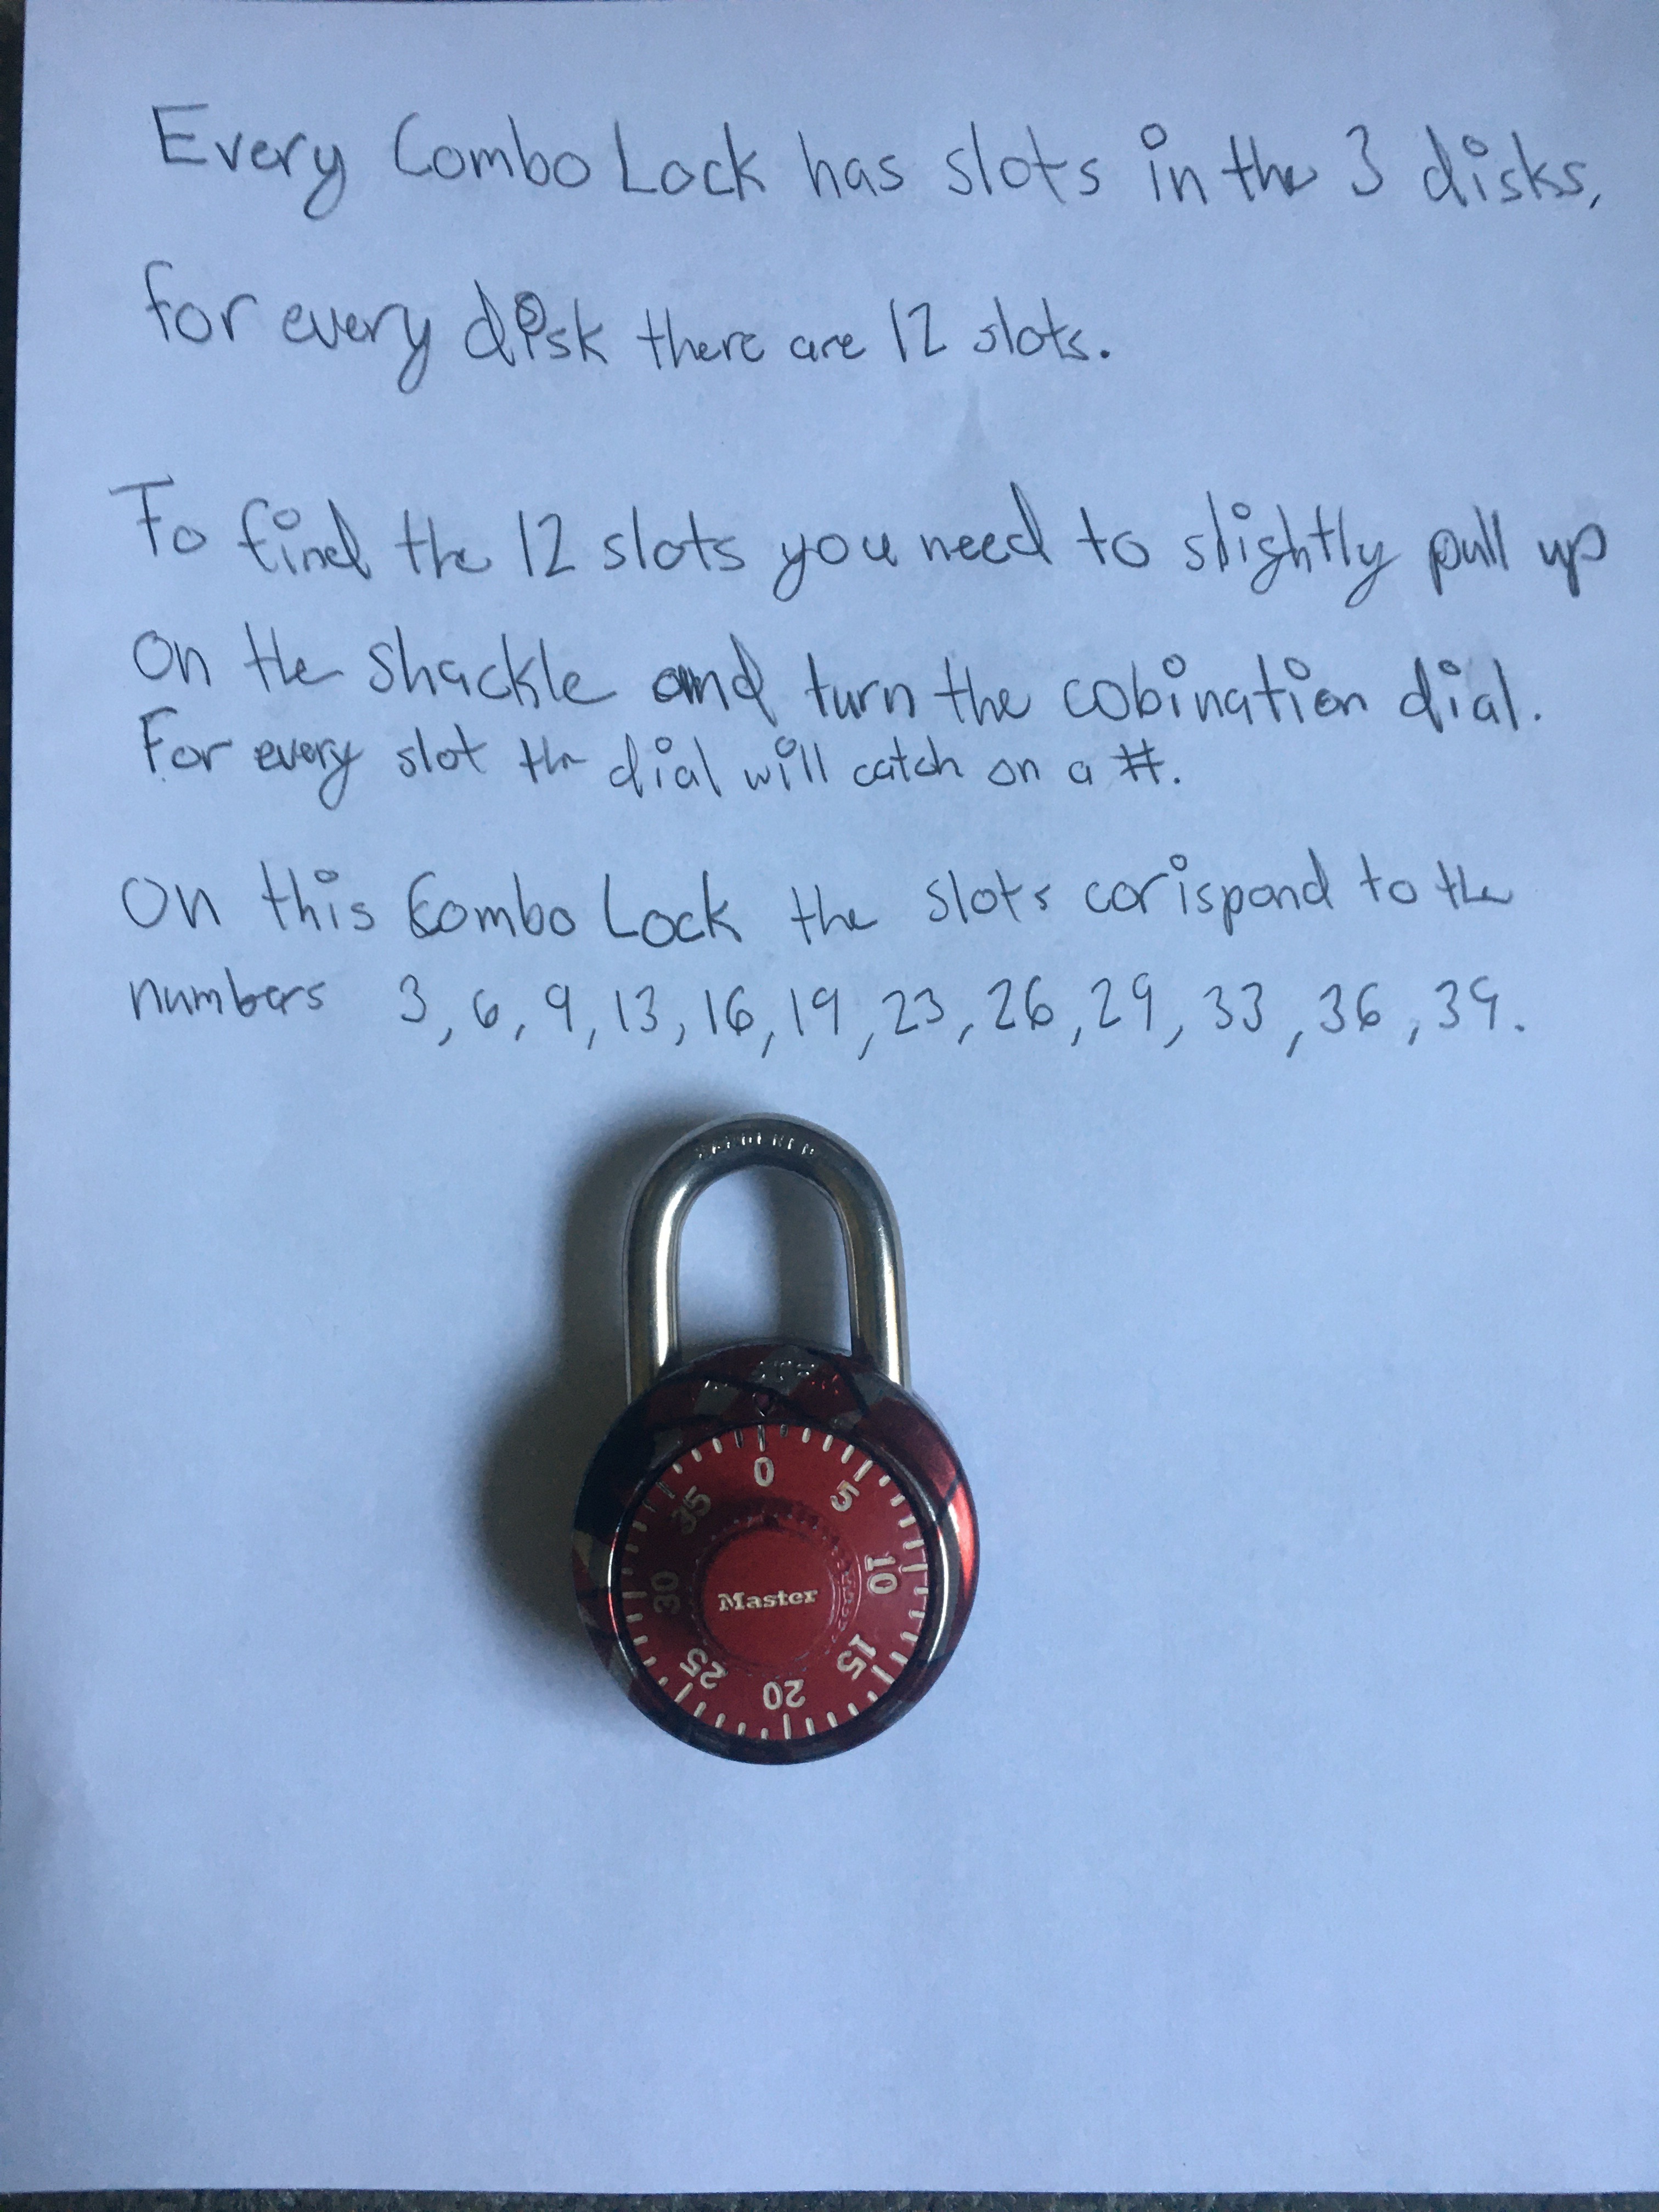 Every Combo Lock has slots in the 3 disks,
for every disk there are 12 slots.
To find the 12 slots you need to slightly pull up
on the shackle and turn the cobination dial.
For every slot the dial will catch on a #.
On this Combo Lock the slots corispond to the
numbers 3, 6, 9, 13, 16, 19, 23, 26, 29, 33, 36, 39.
HARDENED
0
5
10
15
20
25
30
35
Master